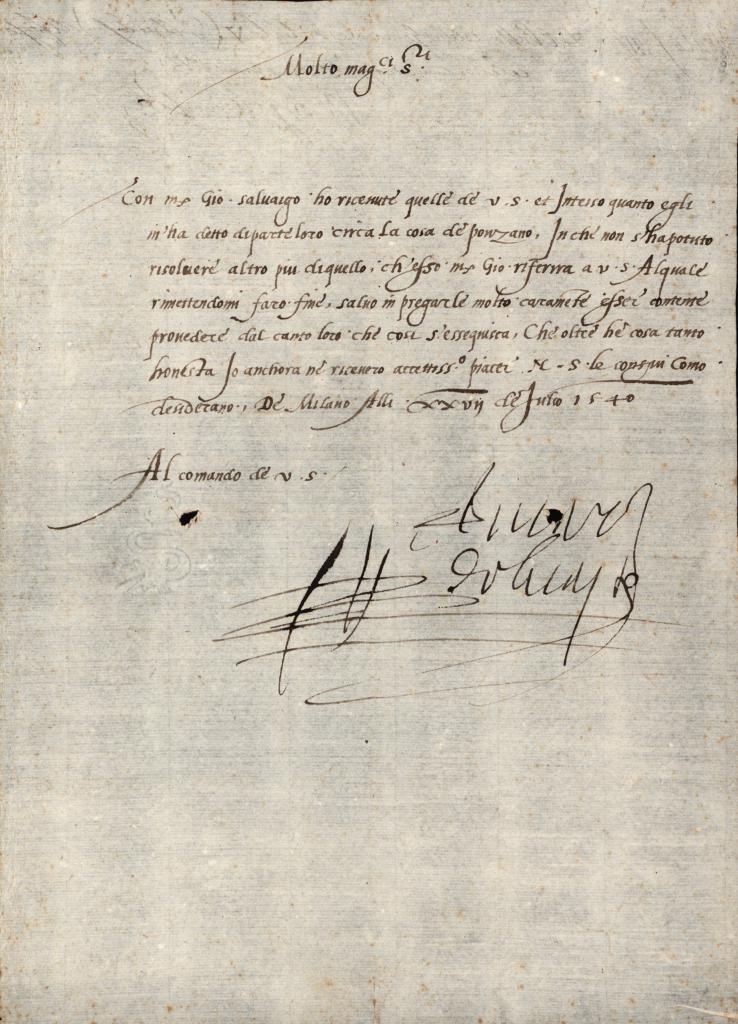 Molto mag.ci S.ri
Con mr Gio. salvaigo ho ricevute quelle de v. s. et Inteso quanto egli
m'ha detto di parte loro circa la cosa de ponzano, In che non s'ha potuto
risolvere altro piu di quello, ch'esso mr Gio. riferira a v. s. Al quale
rimettendomi faro fine, salvo in pregarle molto caramēte esser contente
provedere dal canto loro che cosi s'essequisca, Che oltre he cosa tanto
honesta Jo anchora ne ricevero accettiss.o piacer N. S. le conservi Como
desiderano., De Milano Alli XXVII de Julio 1540
Al comando de v. s.